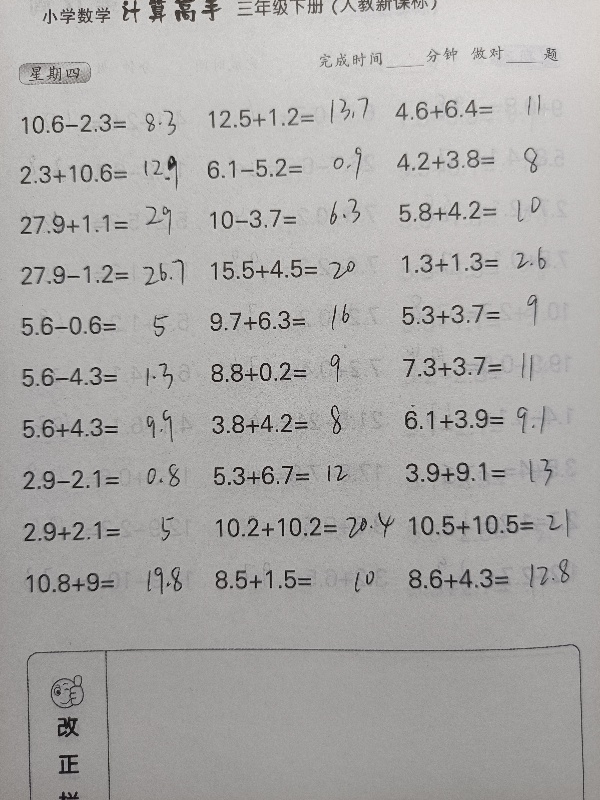 小学数学 计算高手 三年级下册(人教新课标)
完成时间____分钟 做对____题
星期四
10.6−2.3= 8.3 12.5+1.2= 13.7 4.6+6.4= 11
2.3+10.6= 12.9 6.1−5.2= 0.9 4.2+3.8= 8
27.9+1.1= 29 10−3.7= 6.3 5.8+4.2= 10
27.9−1.2= 26.7 15.5+4.5= 20 1.3+1.3= 2.6
5.6−0.6= 5 9.7+6.3= 16 5.3+3.7= 9
5.6−4.3= 1.3 8.8+0.2= 9 7.3+3.7= 11
5.6+4.3= 9.9 3.8+4.2= 8 6.1+3.9= 9.1
2.9−2.1= 0.8 5.3+6.7= 12 3.9+9.1= 13
2.9+2.1= 5 10.2+10.2= 20.4 10.5+10.5= 21
10.8+9= 19.8 8.5+1.5= 10 8.6+4.3= 12.8
改
正